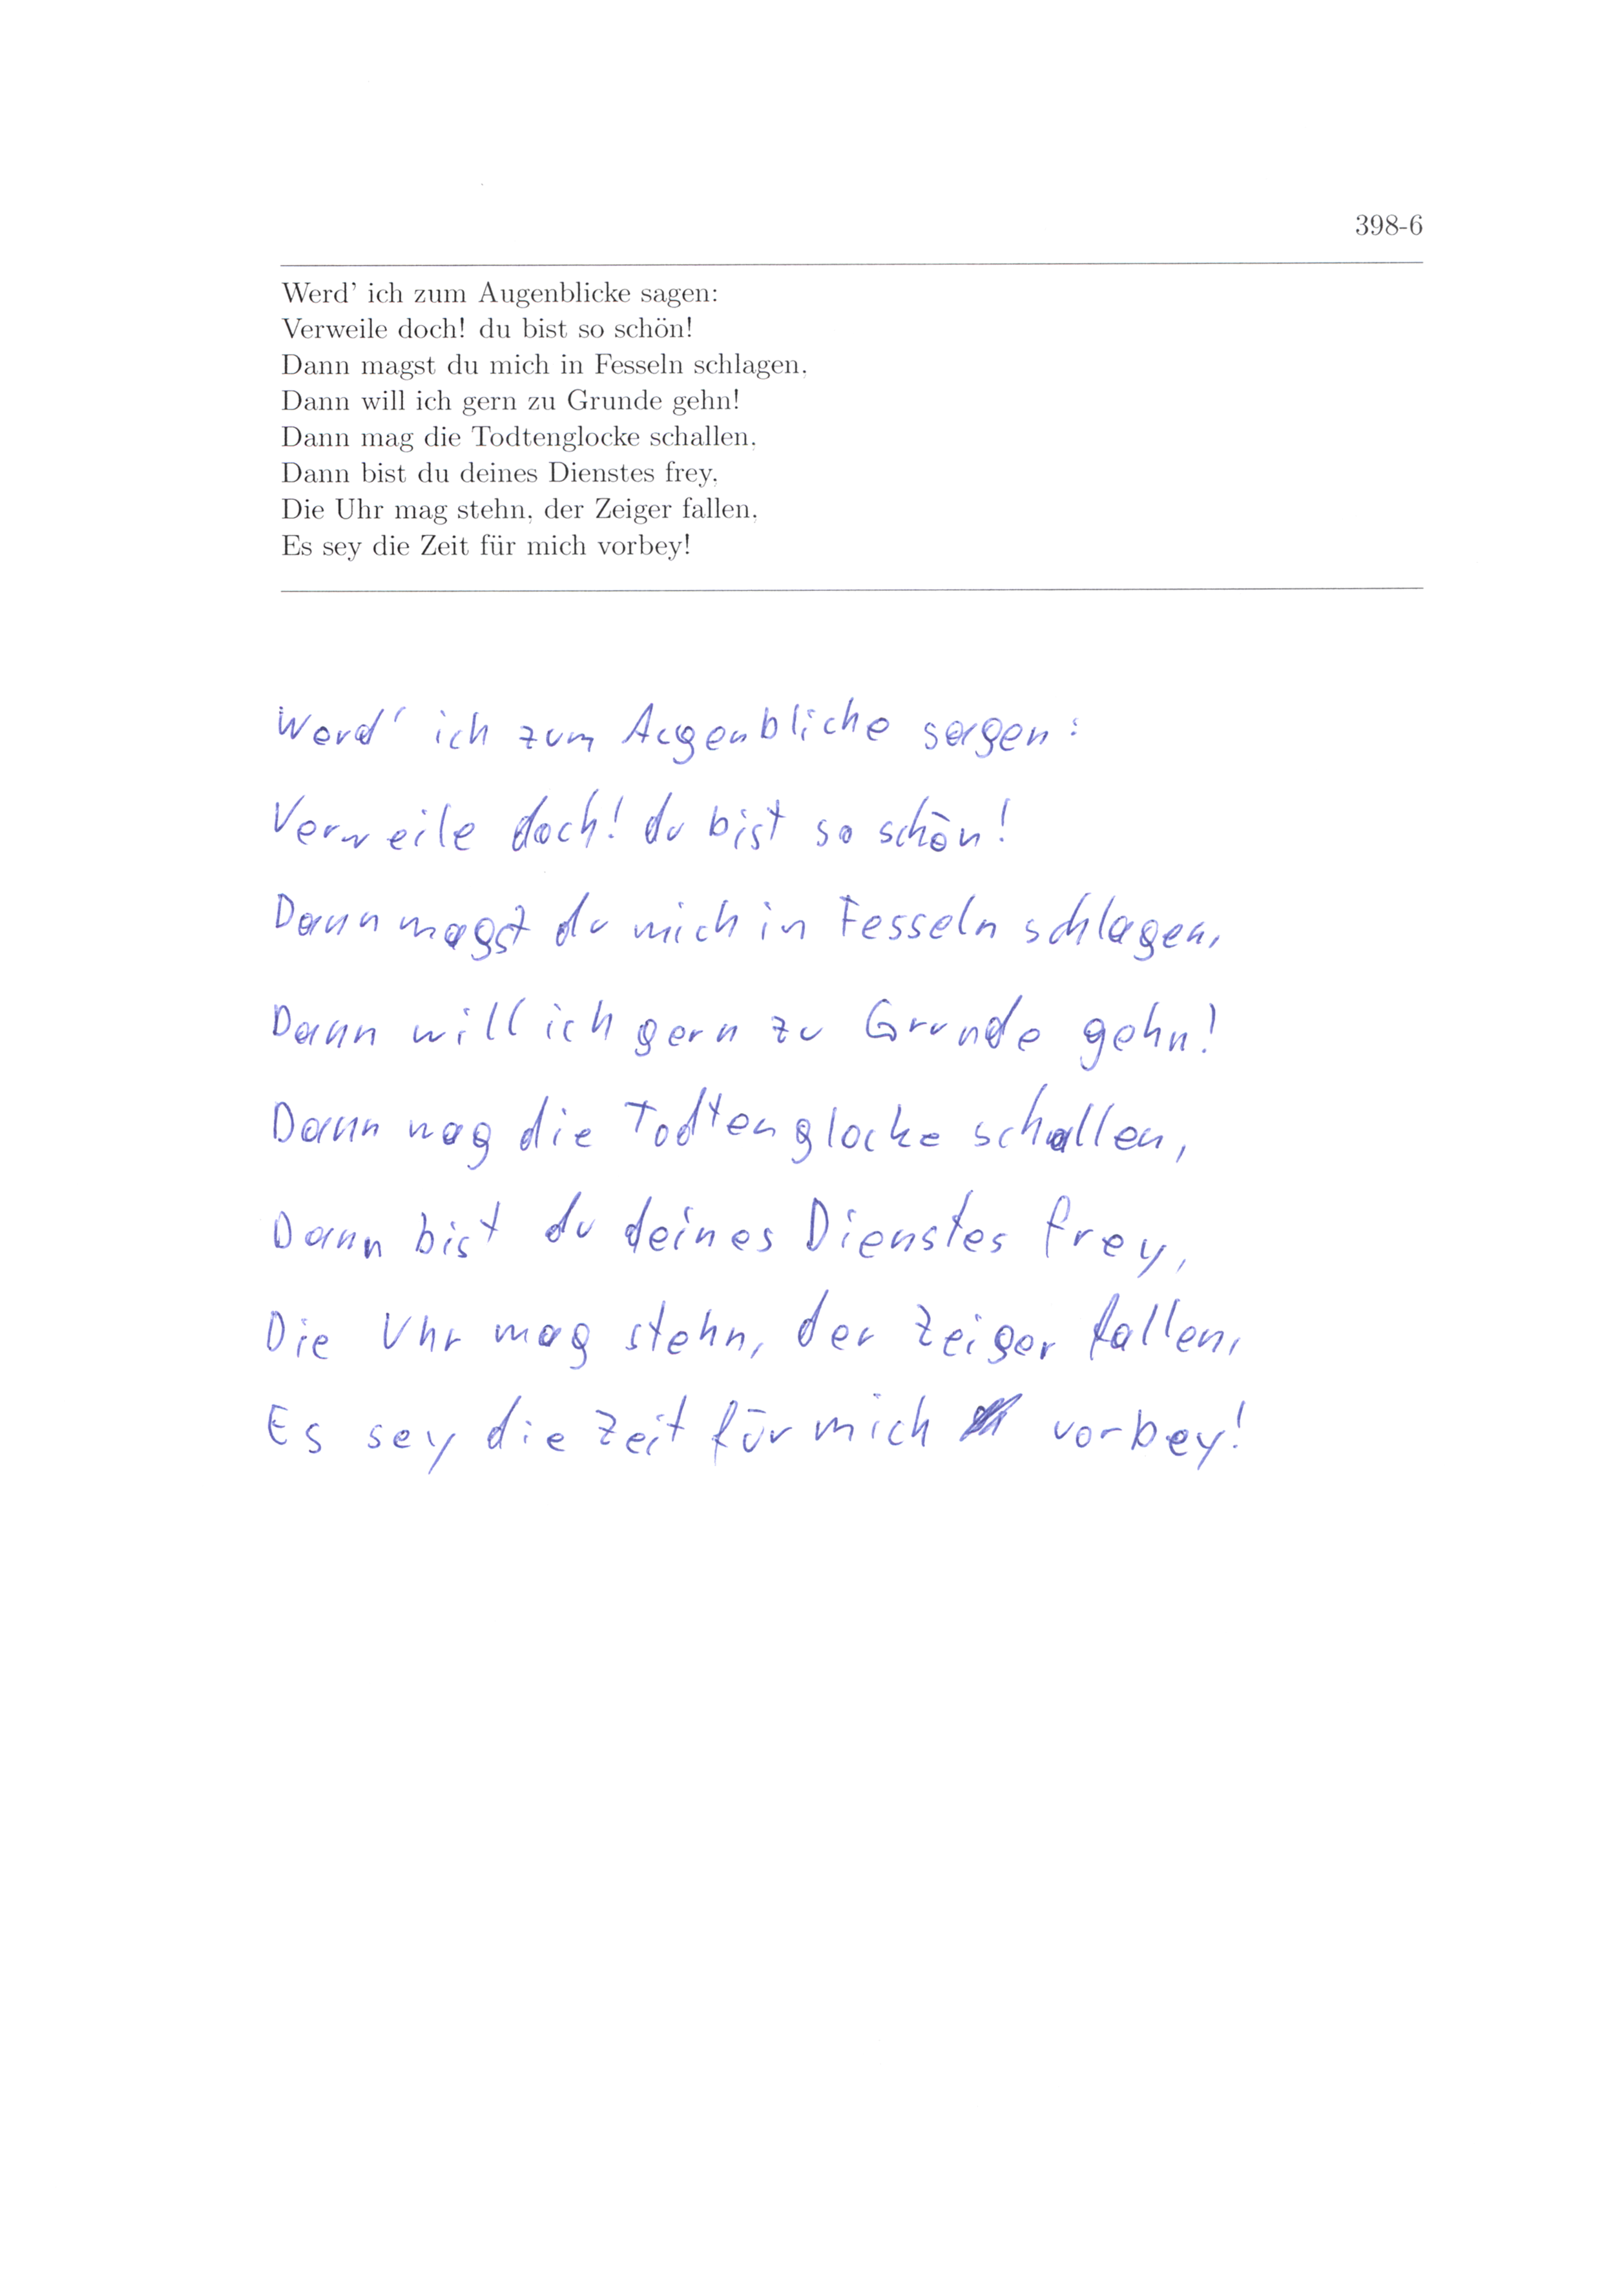 398-6
Werd' ich zum Augenblicke sagen:
Verweile doch! du bist so schön!
Dann magst du mich in Fesseln schlagen,
Dann will ich gern zu Grunde gehn!
Dann mag die Todtenglocke schallen,
Dann bist du deines Dienstes frey,
Die Uhr mag stehn, der Zeiger fallen,
Es sey die Zeit für mich vorbey!
Werd' ich zum Augenblicke sagen:
Verweile doch! du bist so schön!
Dann magst du mich in Fesseln schlagen,
Dann will ich gern zu Grunde gehn!
Dann mag die Todtenglocke schallen,
Dann bist du deines Dienstes frey,
Die Uhr mag stehn, der Zeiger fallen,
Es sey die Zeit für mich vorbey!